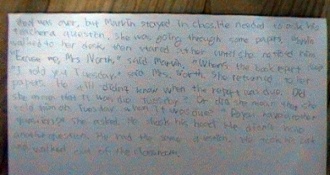 was over, but Marvin stayed in He needed to ask his
teacher a question. She was going through some papers.
walked to her desk, then stared at her until she noticed him.
"Excuse me, Mrs. North," said Marvin, "When's the book report due?"
"I told you Tuesday," said Mrs. North. She returned to her
papers. He still didn't know when the report was due. Did
she mean that it was due Tuesday? Or did she mean that she
told him on Tuesday when it was due?
she asked. He shook his head. He
another question. He had the same question. He took his
and walked out of the classroom.